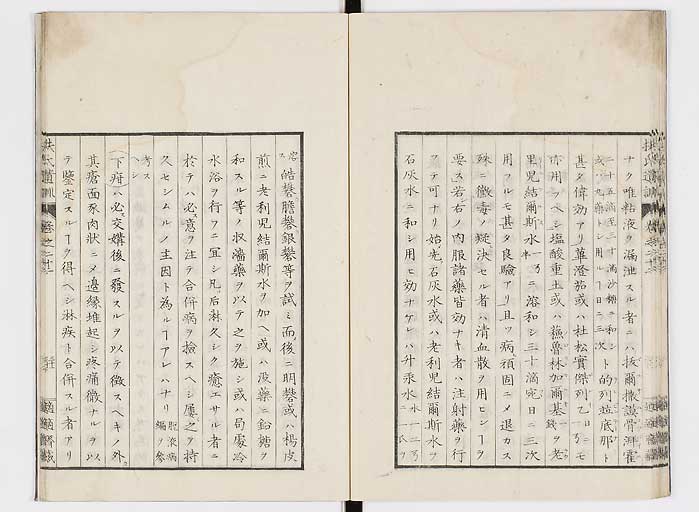 ナク唯粘液ヲ漏泄スル者ニハ抜爾撒謨骨湃霍
二十五滴至三十滴沙糖ニ和シ
或ハ丸藥トシ用ルヿ日ニ三次 ト的列並底那ト
甚タ偉効アリ蓽澄茄或ハ杜松實傑列乙 日ニ二弓 モ
亦用フヘシ塩酸重土或ハ蘓魯林加爾基 ヲ老
里児結爾斯水 ニ溶和シ三十滴宛日ニ三次
用フルモ甚タ良驗アリ且ツ病頑固ニメ退カス
殊ニ黴毒ノ疑決セル者ハ清血散ヲ用ヒシヿヲ
要ス若シ右ノ内服諸藥皆効ナキ者ハ注射藥ヲ行
フテ可ナリ始先石灰水或ハ老利児結爾斯水ヲ
石灰水ニ和シ用ヒ効ナケレハ升汞水
皓礬膽礬銀礬等ヲ試ミ而後ニ明礬或ハ楊皮
煎ニ老利児結爾斯水ヲ加ヘ或ハ没藥ニ鉛糖ヲ
和スル等ノ収濇藥ヲ以テ之ヲ施シ或ハ局處冷
水浴ヲ行フニ宜シ凡后淋久シク癒エサル者ニ
於テハ必意ヲ注テ合併病ヲ檢スヘシ屢之ヲ持
久セシムルノ主因ト為ルヿアレハナリ 膿液病編ヲ參
考ス
ヘシ
(下疳)ハ必交媾後ニ發スルヲ以テ徴スヘキノ外
其瘡面豕肉状ニメ邊縁堆起シ疼痛微ナルヲ以
テ鑒定スルヿヲ得ヘシ淋疾ト合併スル者アリ
扶氏遺訓
卷之二十二
適適齋藏